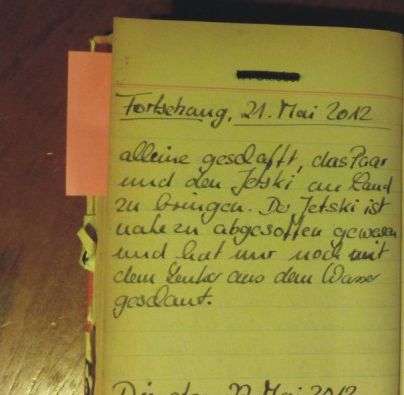 Fortsetzung, 21. Mai 2012
alleine geschafft, das Paar
und den Jetski an Land
zu bringen. Der Jetski ist
nahezu abgesoffen gewesen
und hat nur noch mit
dem Lenker aus dem Wasser
geschaut.
22 Mai 2012